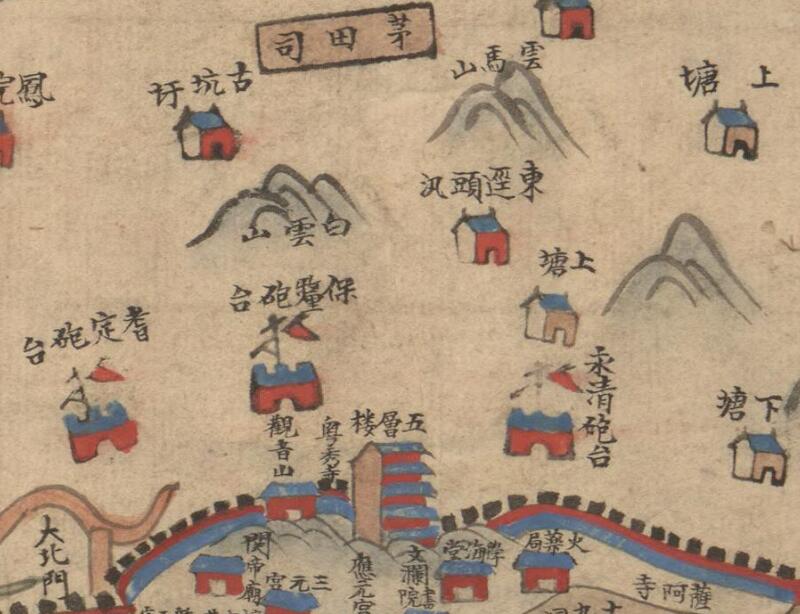 茅田司
雲馬山
上塘
古坑圩
鳳
東逕頭汛
白雲山
上塘
保釐砲台
耆定砲台
永清砲台
下塘
五層楼
粤秀寺
觀音山
大北門
關帝廟
三元宮
應元宮
文瀾書院
學海堂
火藥局
薩阿寺